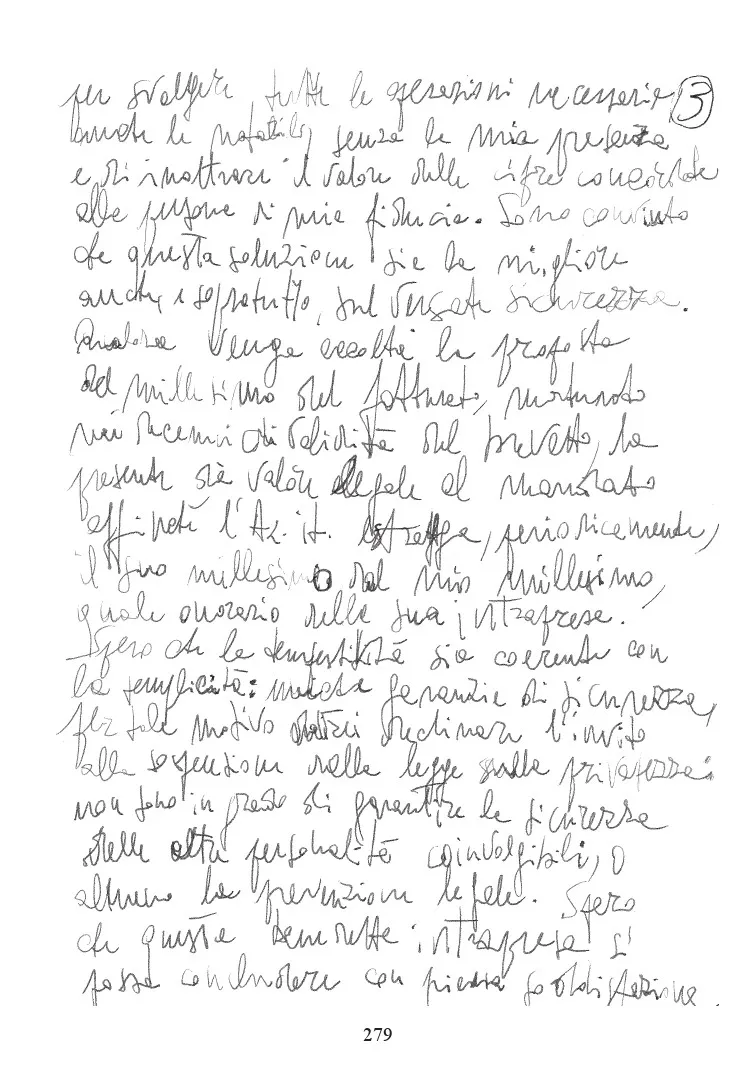 per svolgere tutte le operazioni necessarie, 3
anche le notarili, senza la mia presenza
e di inoltrare il valore delle cifre concordate
alle persone di mia fiducia. Sono convinto
che questa soluzione sia la migliore
anche, e sopratutto, sul versante sicurezza.
Qualora venga accolta la proposta
del millesimo del fatturato, maturato
nei decenni di validità del brevetto, la
presente dia valore legale al mandato
affinché l'Az. it. estragga, periodicamente,
il suo millesimo dal mio millesimo,
quale onorario della sua intrapresa.
Spero che la tempestività sia coerente con
la semplicità: unica garanzia di sicurezza,
per tale motivo dovrei declinare l'invito
alla sospensione della legge sulla privatezza:
non sono in grado di garantire la sicurezza
delle altre personalità coinvolgibili, o
almeno la prevenzione legale. Spero
che questa benedetta intrapresa si
possa concludere con piena soddisfazione.
279